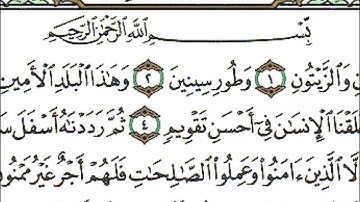 بِسْمِ ٱللَّهِ ٱلرَّحْمَٰنِ ٱلرَّحِيمِ
وَٱلزَّيْتُونِ ١ وَطُورِ سِينِينَ ٢ وَهَٰذَا ٱلْبَلَدِ ٱلْأَمِينِ
لَقْنَا ٱلْإِنسَٰنَ فِىٓ أَحْسَنِ تَقْوِيمٍ ٤ ثُمَّ رَدَدْنَٰهُ أَسْفَلَ سَ
لَّا ٱلَّذِينَ ءَامَنُوا۟ وَعَمِلُوا۟ ٱلصَّٰلِحَٰتِ فَلَهُمْ أَجْرٌ غَيْرُ مَمْنُو